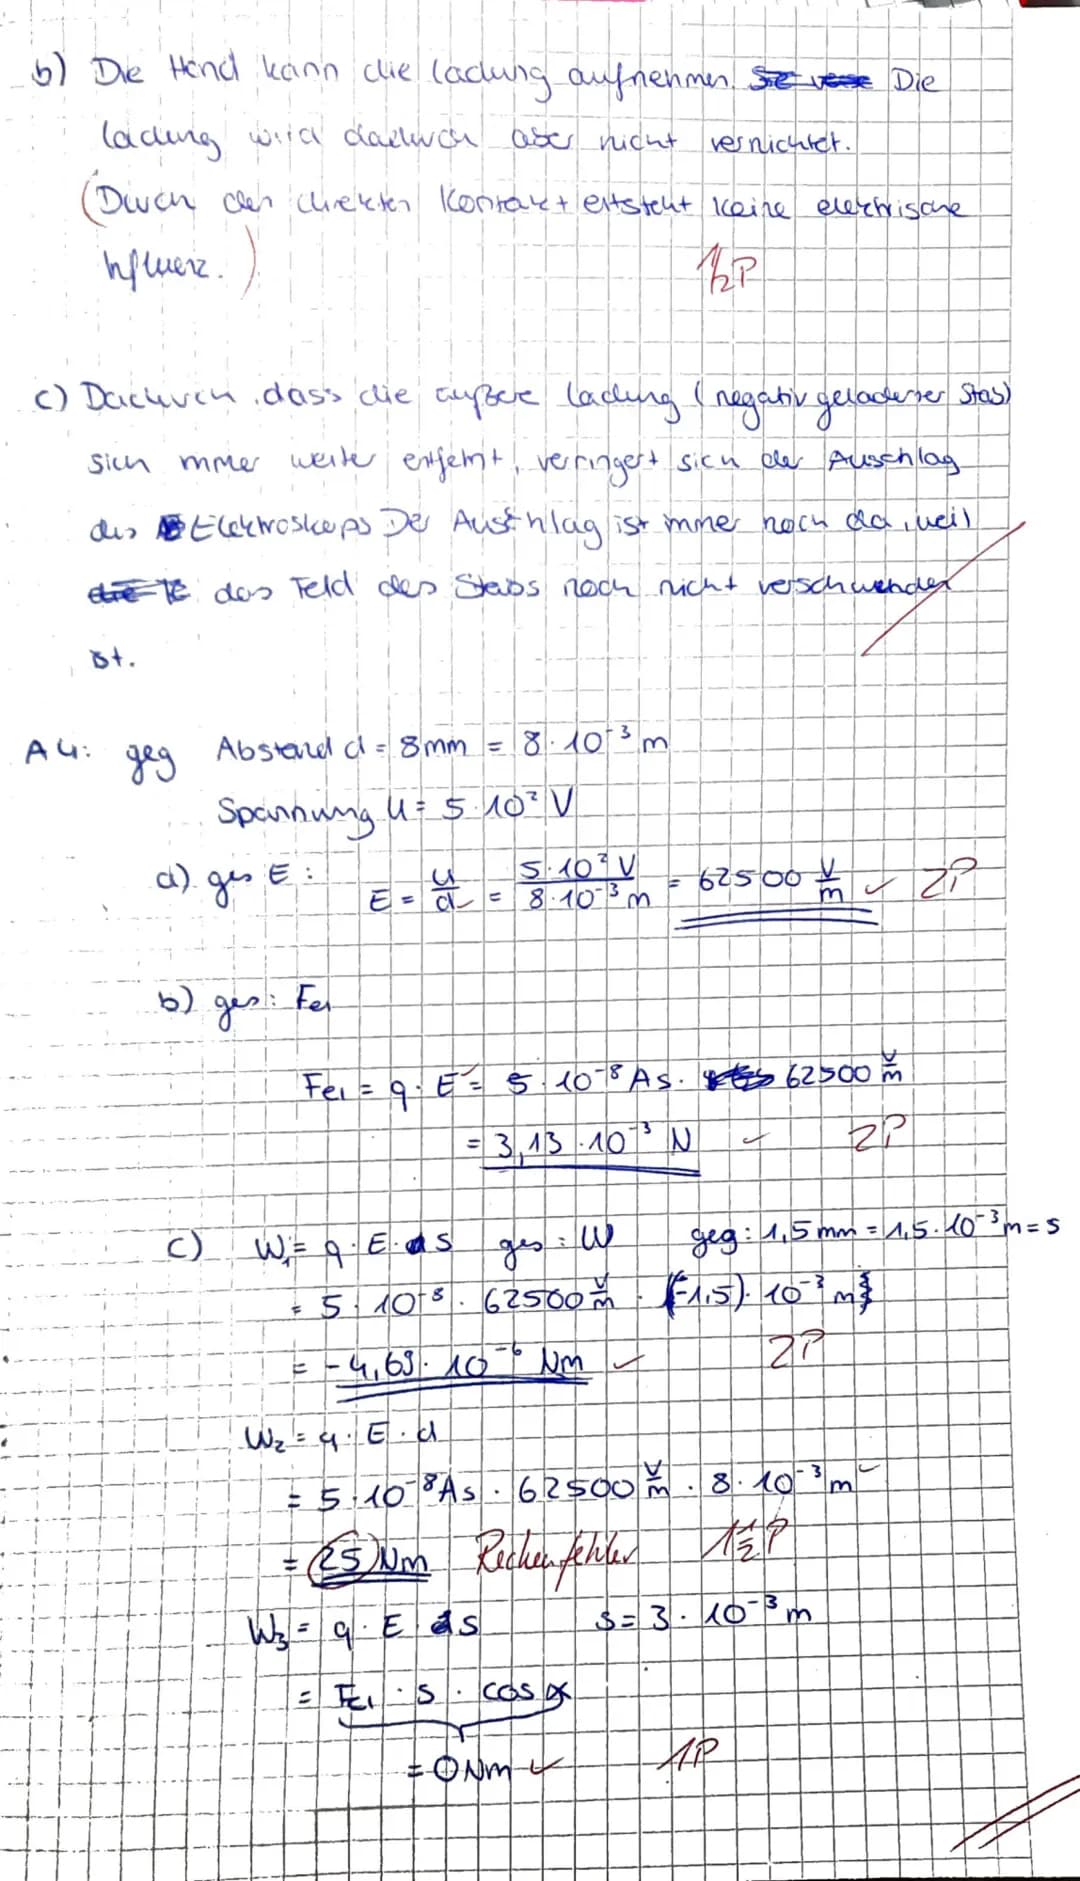 b) Die Hand kann die Ladung aufnehmen. Die
Ladung wird dadurch aber nicht vernichtet.
(Durch den direkten Kontakt entsteht keine elektrische
Influenz.)
½P
c) Dadurch, dass die äußere Ladung (negativ geladener Stab)
sich immer weiter entfernt, verringert sich der Ausschlag
des Elektroskops Der Ausschlag ist immer noch da, weil
das Feld des Stabs noch nicht verschwunden
ist.
A4: geg Abstand d = 8mm = 8·10⁻³ m
Spannung U = 5·10² V
a) ges E: E = U/d = 5·10² V / 8·10⁻³ m = 62500 V/m ✓ 2P
b) ges: Fel
Fel = q·E = 5·10⁻⁸ As · 62500 V/m
= 3,13·10⁻³ N ✓ 2P
c) W₁ = q·E·s ges: W geg: 1,5mm = 1,5·10⁻³ m = s
= 5·10⁻⁸ · 62500 V/m · (-1,5)·10⁻³ m
= -4,69·10⁻⁶ Nm ✓ 2P
W₂ = q·E·d
= 5·10⁻⁸ As · 62500 V/m · 8·10⁻³ m ✓
= 25 Nm Rechenfehler 1½P
W₃ = q·E·s s = 3·10⁻³ m
= Fel · s · cos α
= 0 Nm ✓ 1P